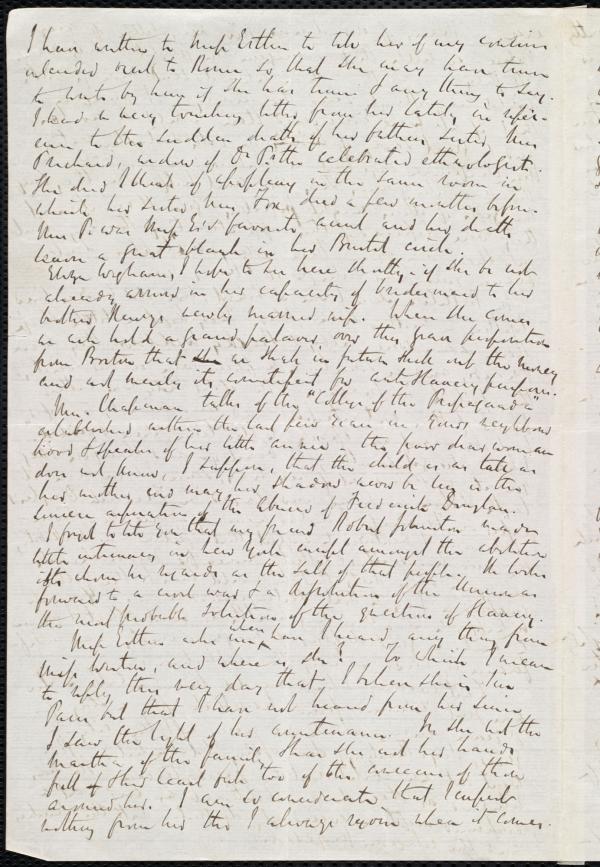 I have written to Miss Estlin to tell her of my cousins
intended visit to Rome so that she may have time
to write by him if she has time & any thing to say.
I had a very touching letter from her lately in refer-
ence to the sudden death of her father's sister Mrs
Prichard, widow of Dr P. the celebrated ethnologist.
She died I think of apoplexy in the same room in
which her sister Mrs Fox, died a few months before.
Mrs P. was Miss E's favorite aunt and her death
leaves a great blank in her Bristol circle.
Eliza Wigham, I hope to see here shortly - if she be not
already arrived in her capacity of bridesmaid to her
brother Henry's newly married wife. When she comes
we will hold a grand palaver over this grave proposition
from Boston that we shall in future seek out the money
and not merely its counterfeit for anti slavery purposes.
Mrs. Chapman talks of the "College of the Propaganda"
established within the last few years in your neighbour
hood & speaks of her little Annie - the poor dear woman
does not know, I suppose, that the child is as tall as
her mother, and may her shadow never be less is the
sincere aspiration of the abuser of Frederick Douglass.
I forgot to tell you that my friend Robert Johnston made
little intimacy in New York except amongst the abolition
ists whom he regards as the salt of that people. He looks
forward to a civil war & a dissolution of the Union as
the most probable solution of the question of slavery.
Miss Estlin asks when have I heard any thing from
Miss Weston, and where is she? To which I mean
to reply this very day that I believe she is in
Paris but that I have not heard from her since
I saw the light of her countenance. Is she not the
Martha of the family? Has she not her hands
full & her heart full too of the concerns of those
around her. I am so considerate that I expect
nothing from her tho I always rejoice when it comes.